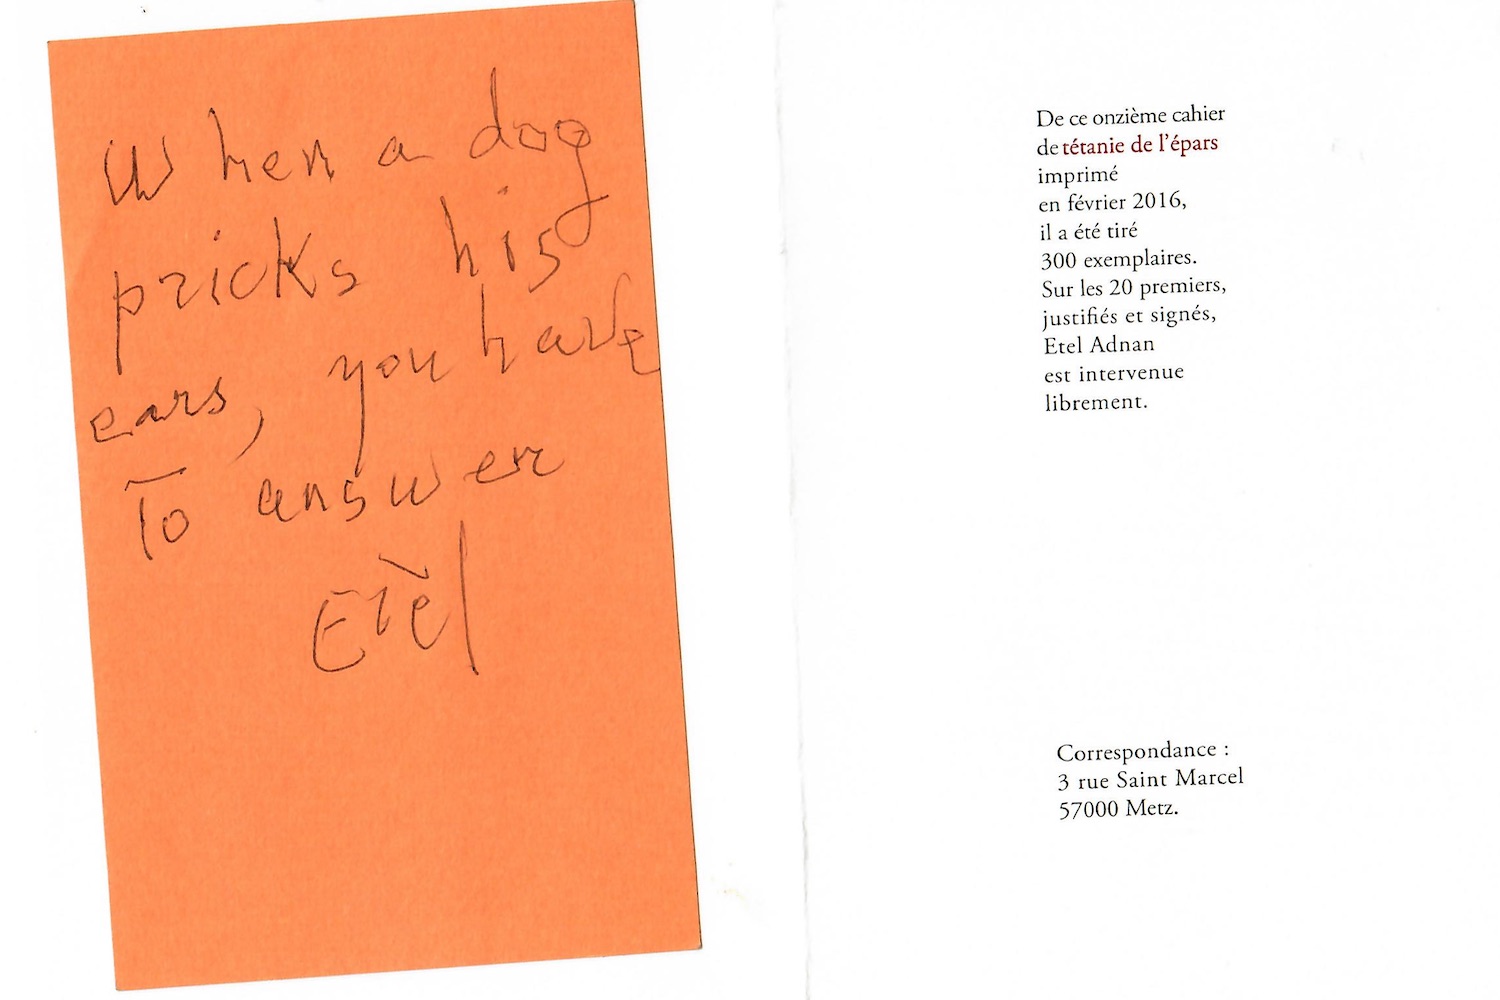 When a dog
pricks his
ears, you have
To answer
Etèl
De ce onzième cahier
de tétanie de l'épars
imprimé
en février 2016,
il a été tiré
300 exemplaires.
Sur les 20 premiers,
justifiés et signés,
Etel Adnan
est intervenue
librement.
Correspondance :
3 rue Saint Marcel
57000 Metz.